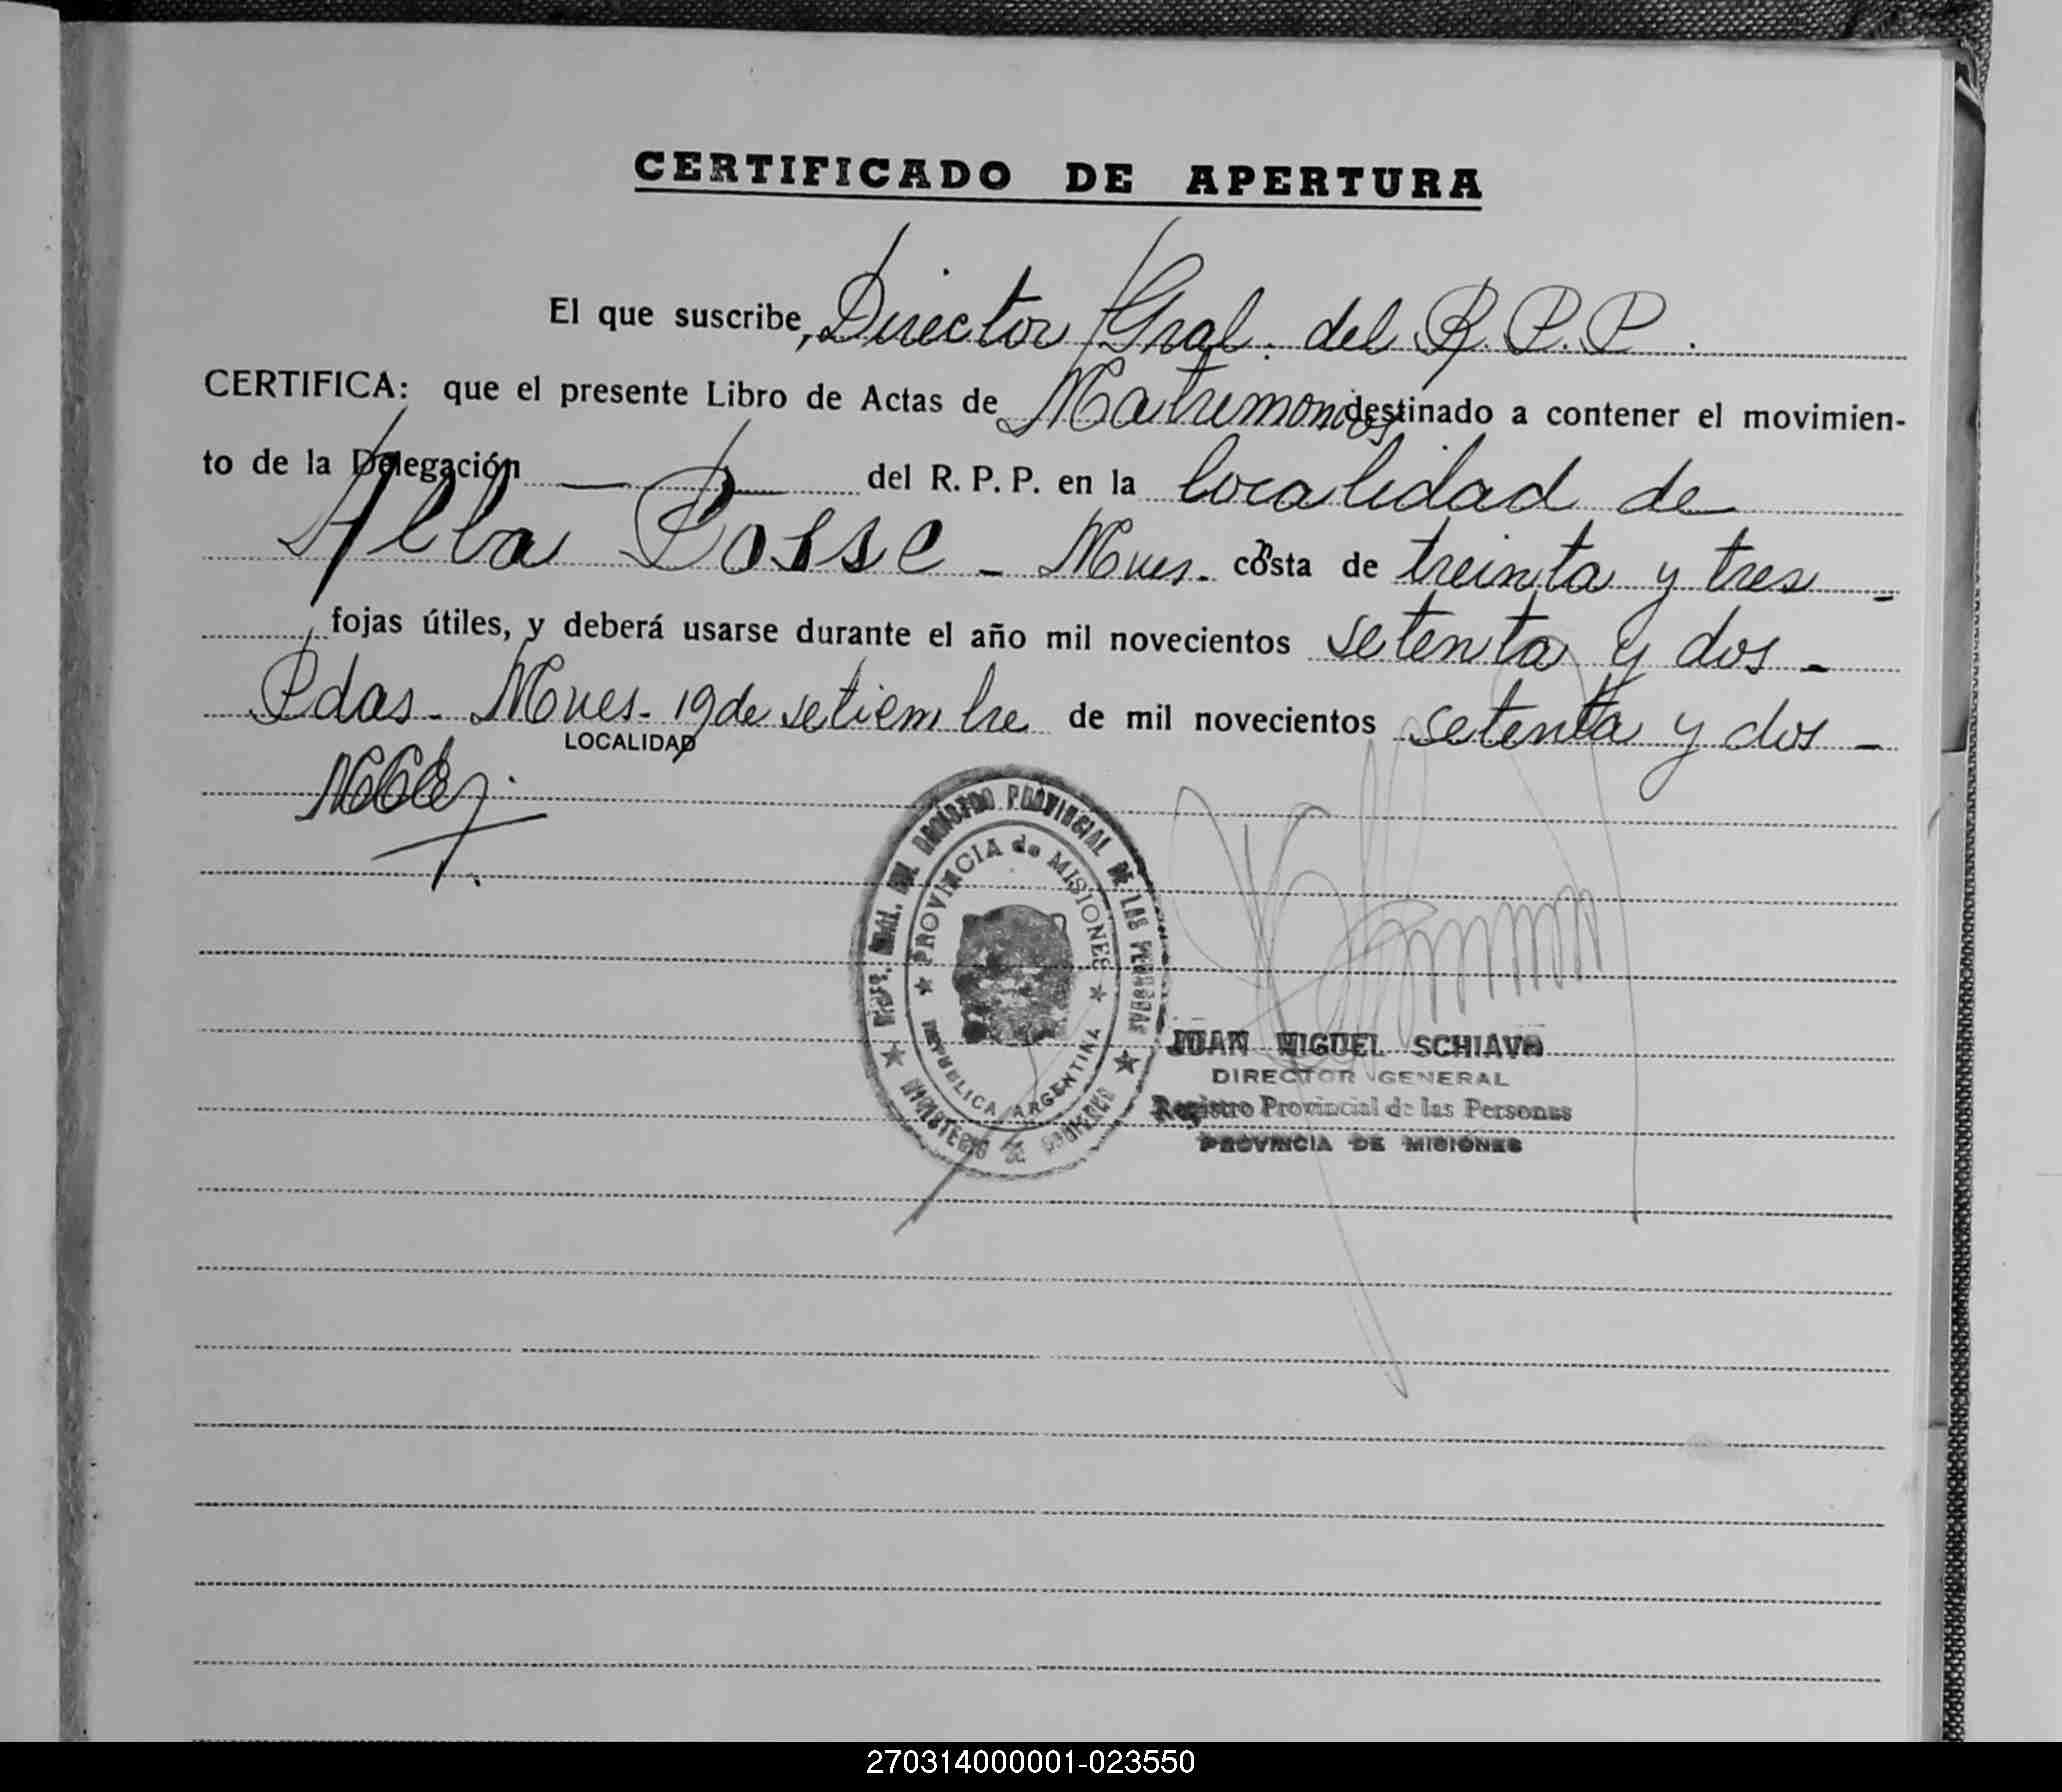 CERTIFICADO DE APERTURA
El que suscribe, Director Gral. del R.P.P.
CERTIFICA: que el presente Libro de Actas de Matrimonios destinado a contener el movimien-
to de la Delegación — — del R. P. P. en la localidad de
Alba Posse - Mnes. costa de treinta y tres -
fojas útiles, y deberá usarse durante el año mil novecientos setenta y dos -
Pdas - Mnes - 19 de setiembre de mil novecientos setenta y dos -
LOCALIDAD
DIREC. GRAL. DEL REGISTRO PROVINCIAL DE LAS PERSONAS
PROVINCIA de MISIONES
REPUBLICA ARGENTINA
MINISTERIO DE GOBIERNO
JUAN MIGUEL SCHIAVO
DIRECTOR GENERAL
Registro Provincial de las Personas
PROVINCIA DE MISIONES
270314000001-023550